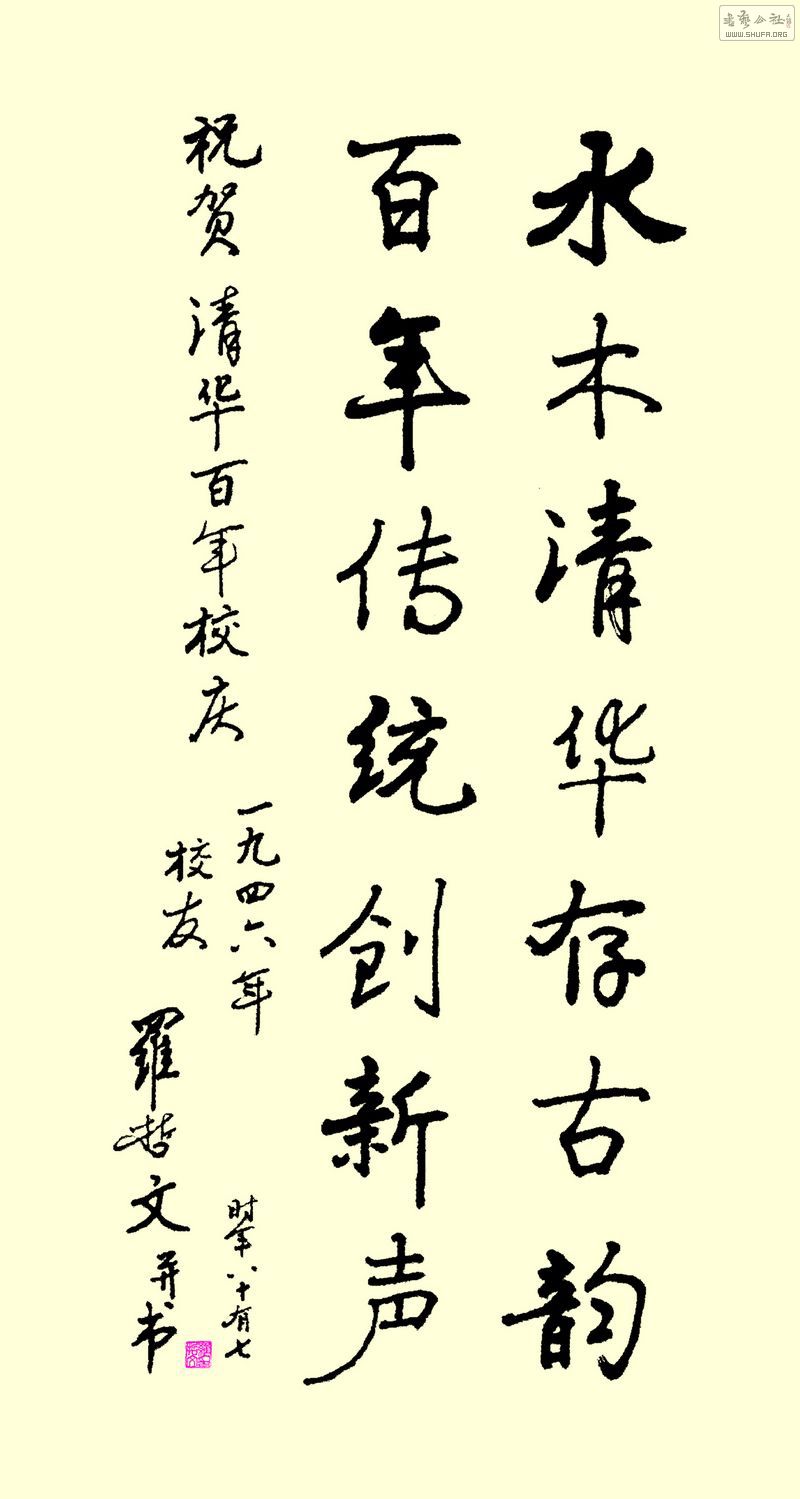 水木清华存古韵
百年传统创新声
祝贺清华百年校庆
一九四六年
校友
羅哲文并书
时年八十有七
书艺公社
WWW.SHUFA.ORG